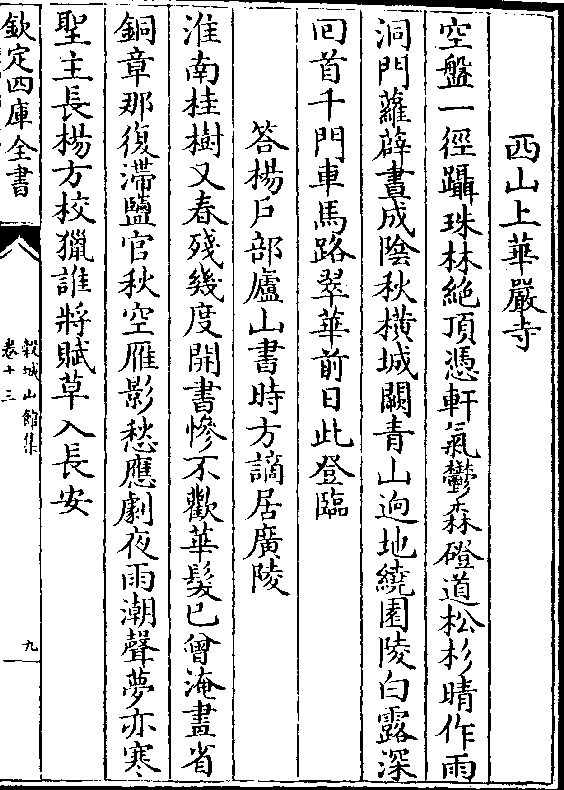 西山上華嚴寺
空盤一徑躡珠林絶頂憑軒氣鬱森磴道松杉晴作雨
洞門蘿薜晝成陰秋横城闕青山逈地繞園陵白露深
回首千門車馬路翠華前日此登臨
答楊户部廬山書時方謫居廣陵
淮南桂樹又春殘幾度開書慘不歡華髪已曾淹畫省
銅章那復滯鹽官秋空雁影愁應劇夜雨潮聲夢亦寒
聖主長楊方校獵誰將賦草入長安
欽定四庫全書
糓城山館集
卷十三
九